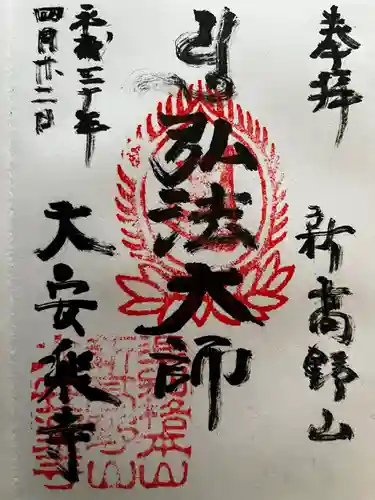 奉拝
新高野山
弘法大師
平成三十年
四月廿二日
大安楽寺